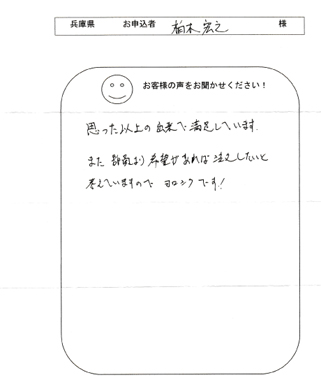 兵庫県 お申込者 柏木宏之 様
お客様の声をお聞かせください!
思った以上の出来で満足しています.
また 部員より希望があれば注文したいと
考えていますので ヨロシクです!